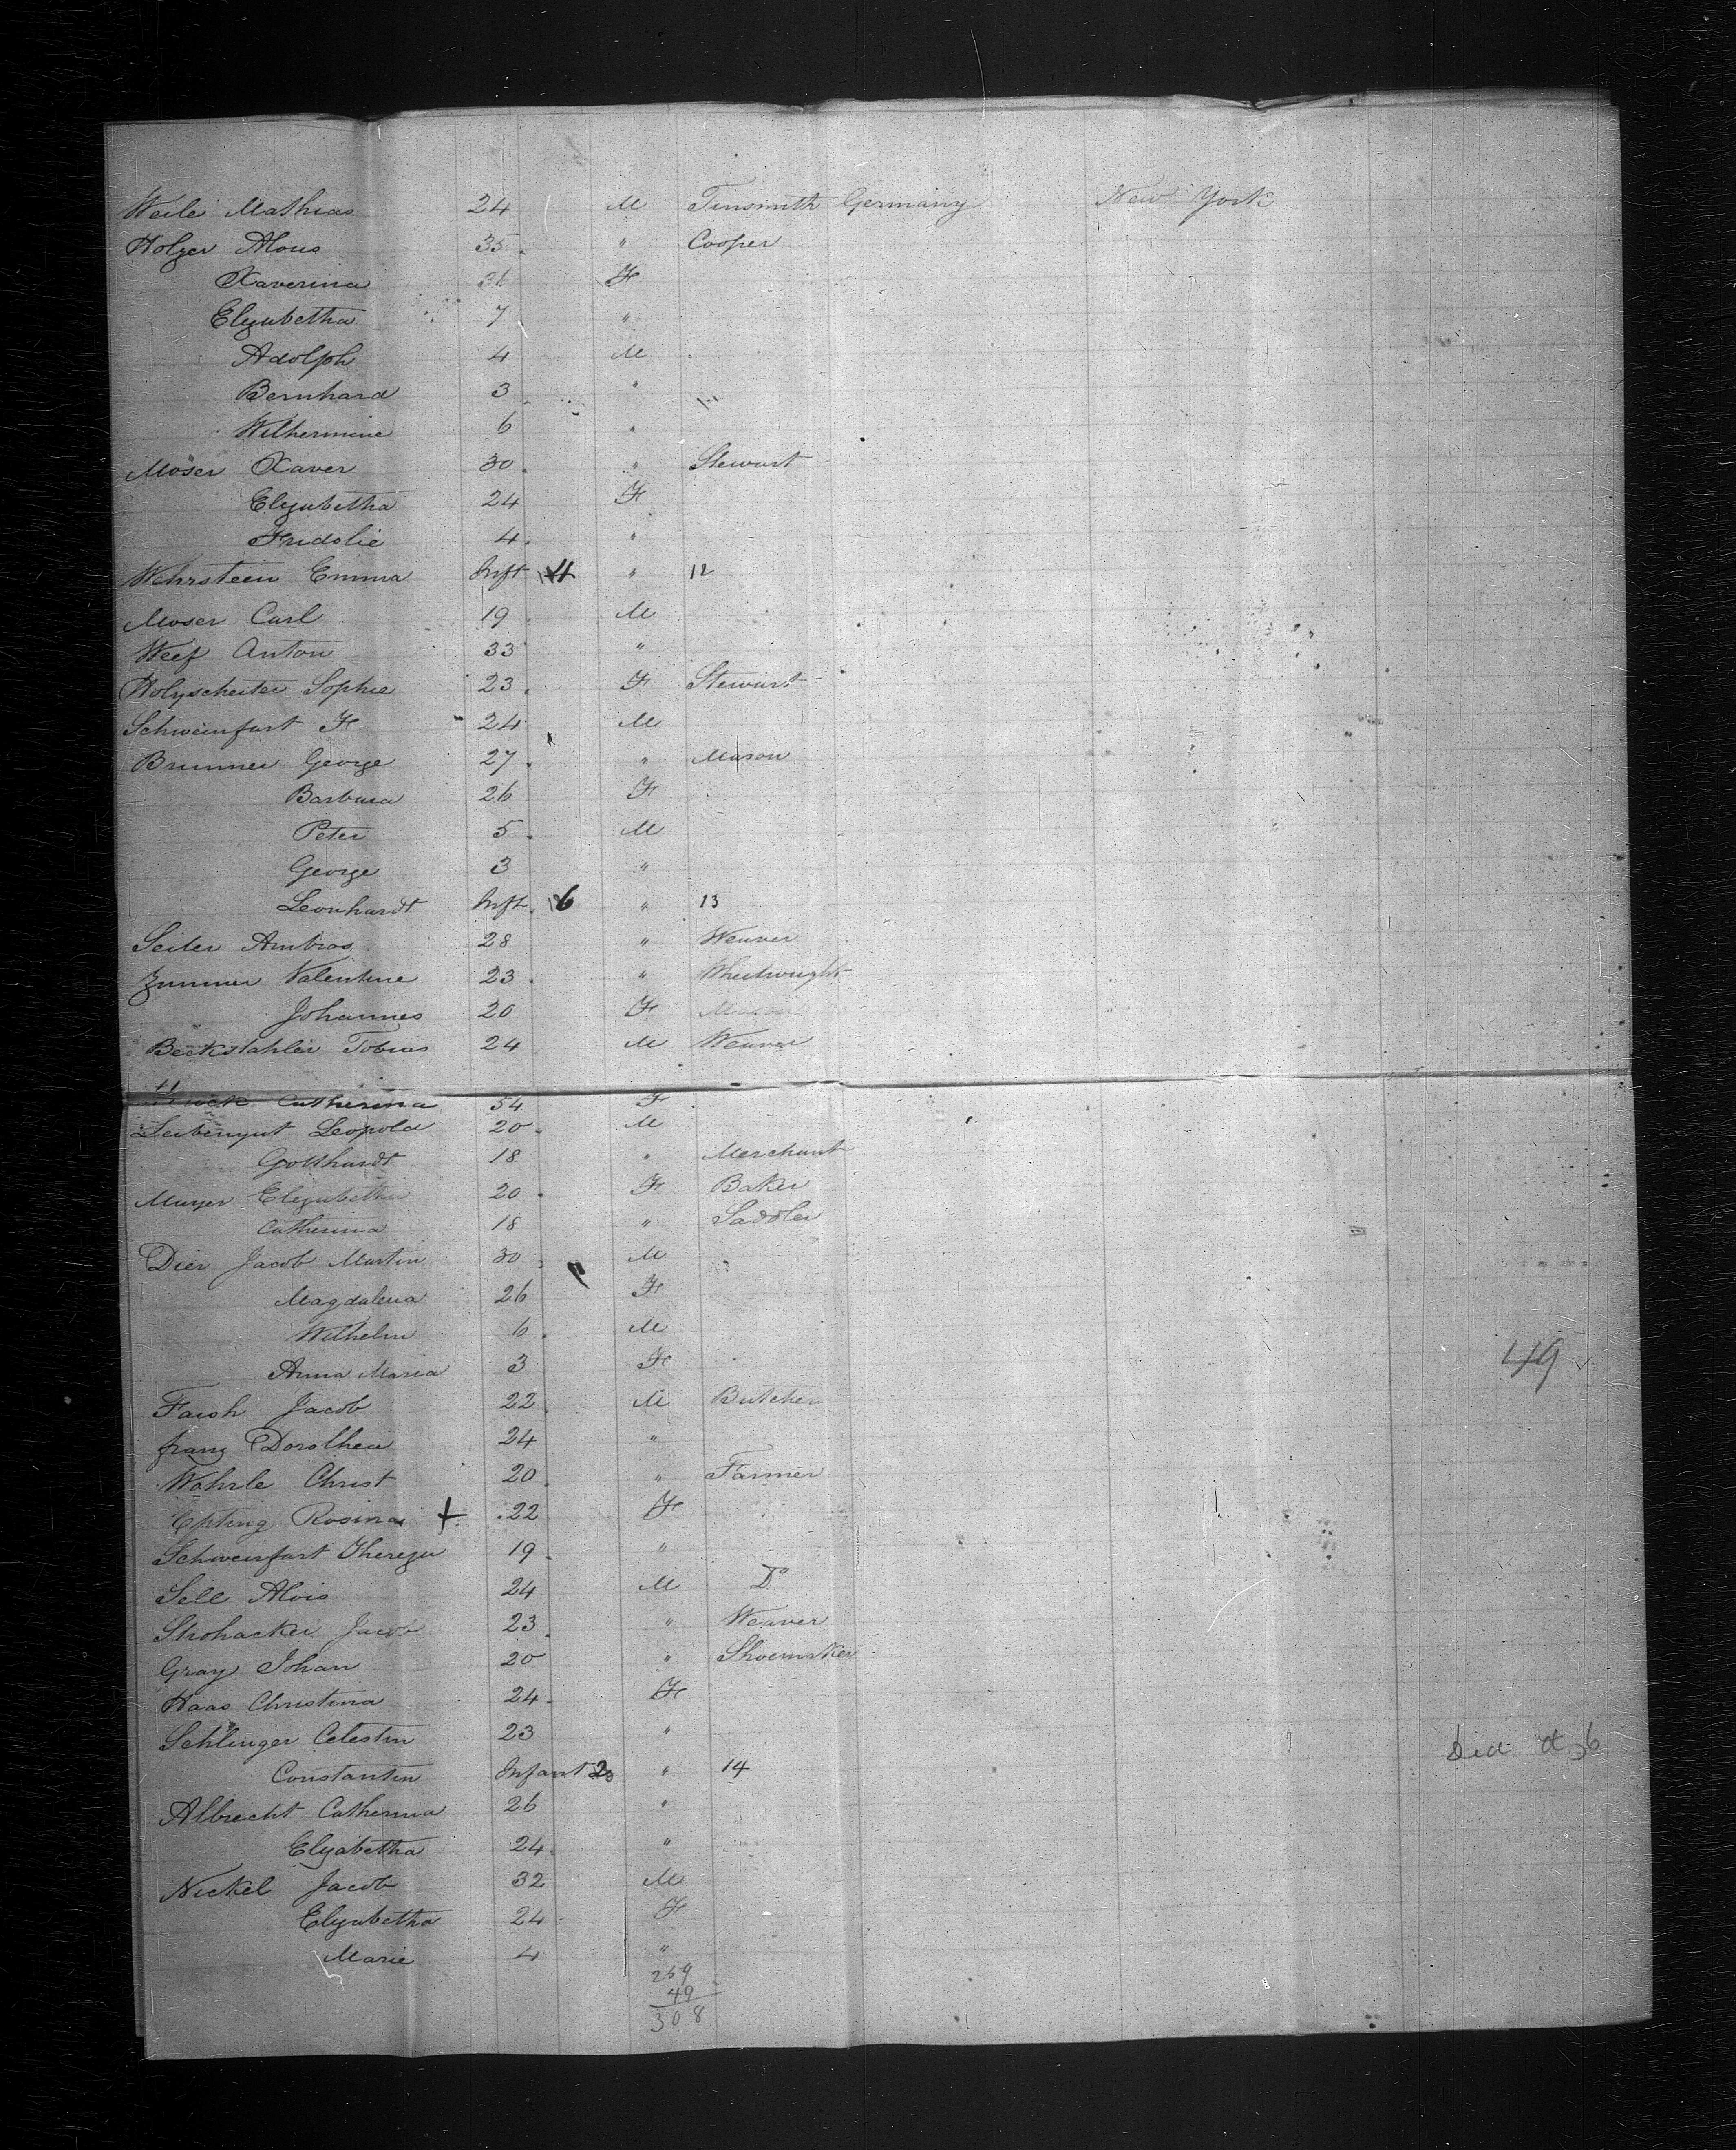 Weile Mathias 24 M Tinsmith Germany New York
Holzer Alous 35 " Cooper
Xaverina 36 F
Elyzabetha 7 "
Adolph 4 M
Bernhard 3 "
Wilhermine 6 "
Moser Xaver 30 " Stewart
Elyzabetha 24 F
Fridolie 4 "
Wehrstein Emma Inft 4 " 12
Moser Carl 19 M
Weef Anton 33 "
Holyscheiter Sophie 23 F Stewart
Schweinfart F 24 M
Brunner George 27 " Mason
Barbara 26 F
Peter 5 M
George 3 "
Leonhardt Inft 6 " 13
Seiler Ambros 28 " Weaver
Zummer Valentine 23 " Wheelwright
Johannes 20 F Mason
Beckstahler Tobias 24 M Weaver
Catherina 54 F
Leibengut Leopold 20 M
Gotthardt 18 " Merchant
Mayer Elezabetha 20 F Baker
Catherina 18 " Saddler
Dier Jacob Martin 30 M
Magdalena 26 F
Wilhelm 6 M
Anna Maria 3 F
49
Faish Jacob 22 M Butcher
franz Dorothea 24 "
Wohrle Christ 20 " Farmer
Epting Rosina + 22 F
Schweinfart Therezu 19 "
Sell Alois 24 M Do
Strohacker Jacob 23 " Weaver
Gray Johan 20 " Shoemaker
Haas Christina 24 F
Schlinger Celestin 23 "
Constantin Infant 2 " 14
Albrecht Catherina 26 "
Elyzabetha 24 "
Nickel Jacob 32 M
Elyzabetha 24 F
Marie 4 "
259
49
308